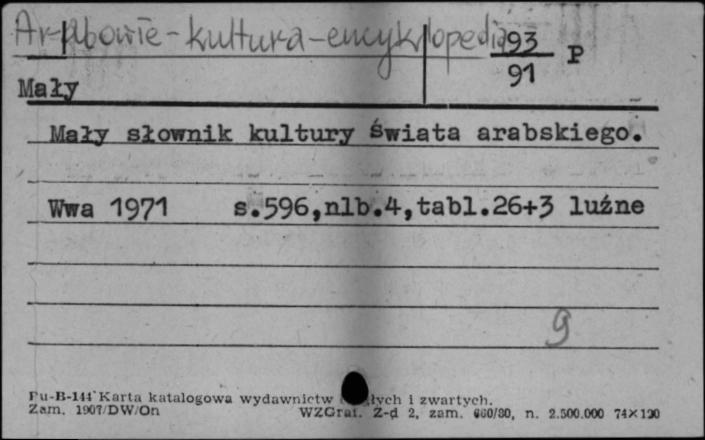 Arabowie - kultura - encyklopedia
93 P
91
Mały
Mały słownik kultury świata arabskiego.
Wwa 1971 s.596,nlb.4,tabl.26+3 luźne
9
Pu-B-144 Karta katalogowa wydawnictw i zwartych.
Zam. 1907/DW/On WZGraf. Z-d 2, zam. 660/80, n. 2.500.000 74×120